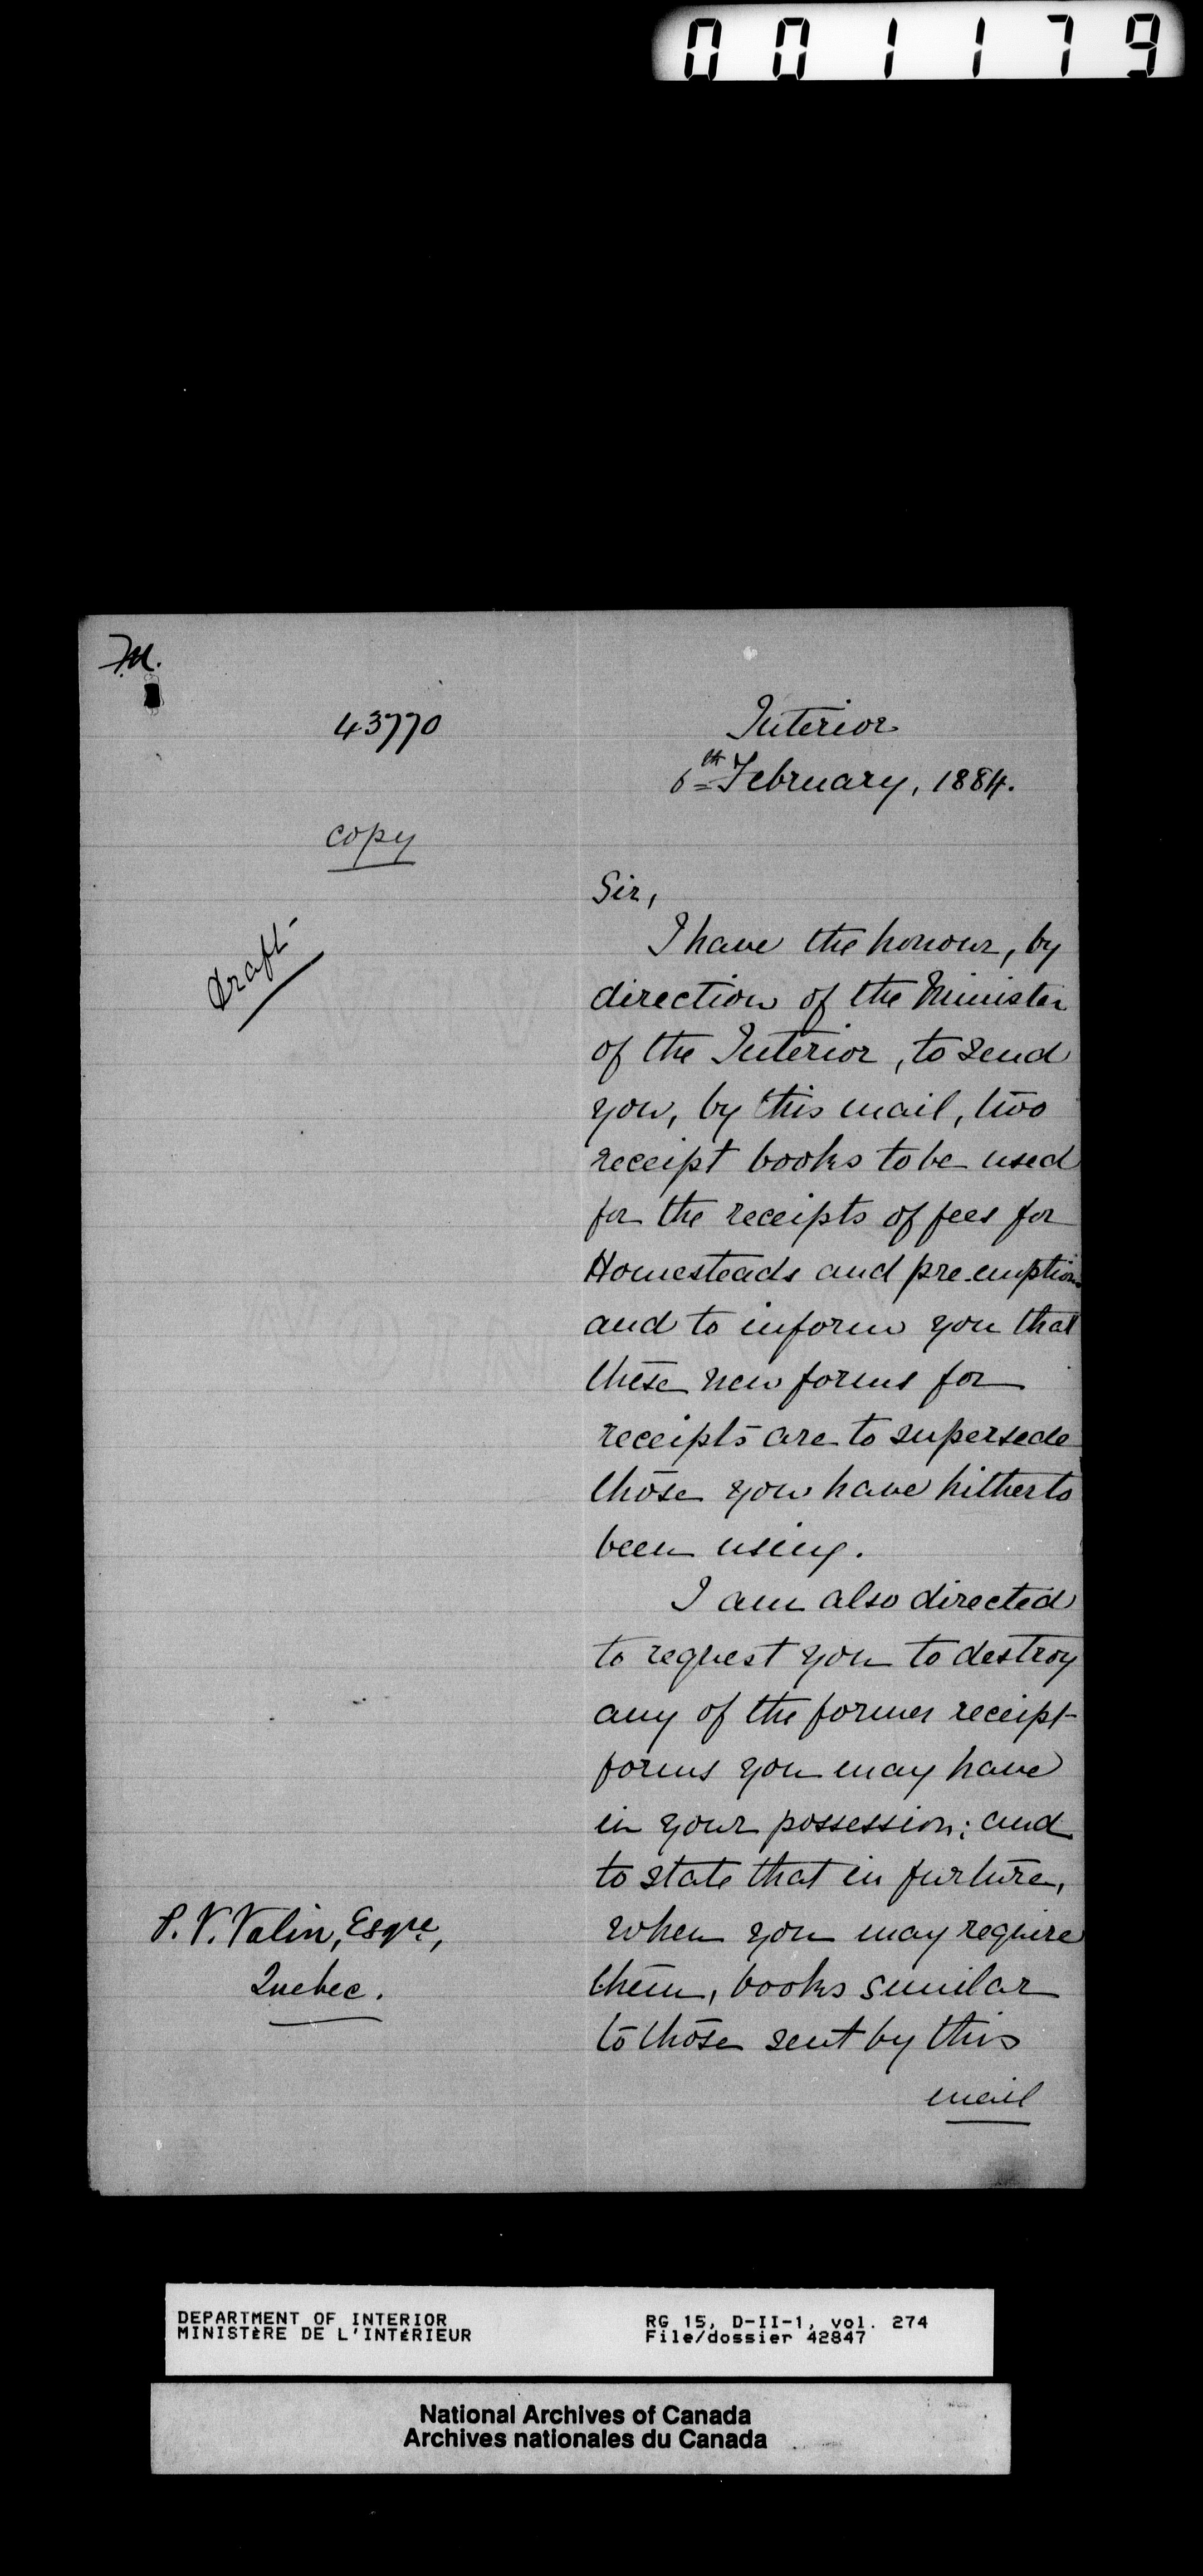 001179
F.M.
43770
Interior
6th February, 1884.
copy
Draft
Sir,
I have the honour, by
direction of the Minister
of the Interior, to send
you, by this mail, two
receipt books to be used
for the receipts of fees for
Homesteads and pre-emptions
and to inform you that
these new forms for
receipts are to supersede
those you have hitherto
been using.
I am also directed
to request you to destroy
any of the former receipt
forms you may have
in your possession; and
to state that in furture,
when you may require
them, books similar
to those sent by this
mail
P. V. Valin, Esqre,
Quebec.
DEPARTMENT OF INTERIOR
MINISTÈRE DE L'INTÉRIEUR
RG 15, D-II-1, vol. 274
File/dossier 42847
National Archives of Canada
Archives nationales du Canada